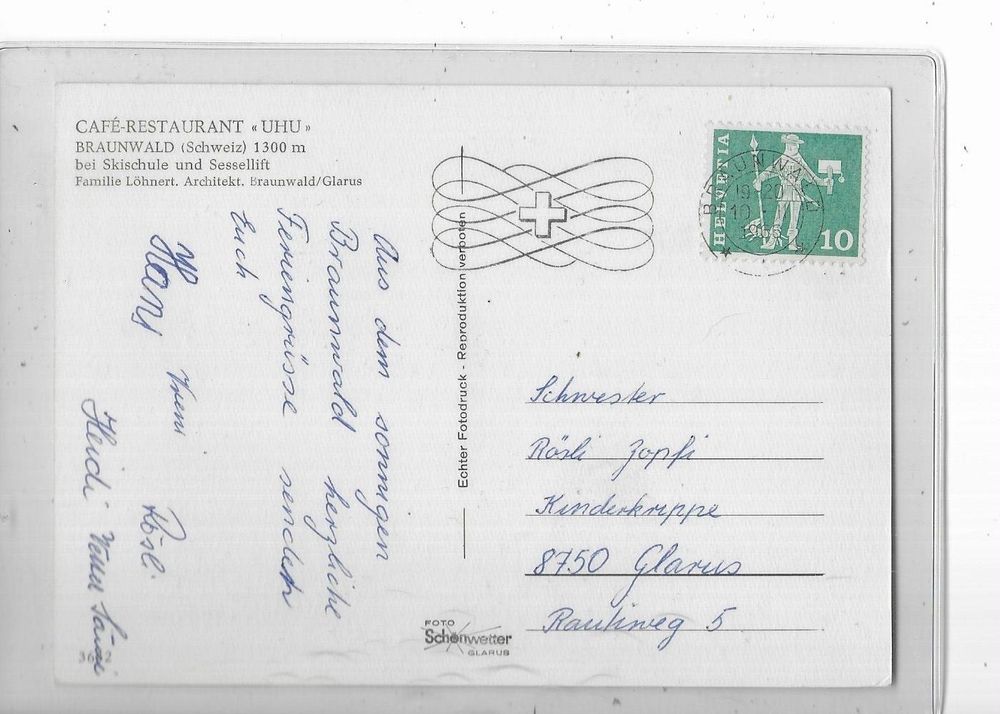 CAFÉ-RESTAURANT «UHU»
BRAUNWALD (Schweiz) 1300 m
bei Skischule und Sessellift
Familie Löhnert. Architekt. Braunwald/Glarus
Aus dem sonnigen
Braunwald herzliche
Feriengrüsse senden
Euch
Hans
Vreni Rösli
Heidi
Echter Fotodruck - Reproduktion verboten
HELVETIA
10
BRAUNWALD
19.-20
1966
Schwester
Rösli Zopfi
Kinderkrippe
8750 Glarus
Rautiweg 5
FOTO
Schönwetter
GLARUS